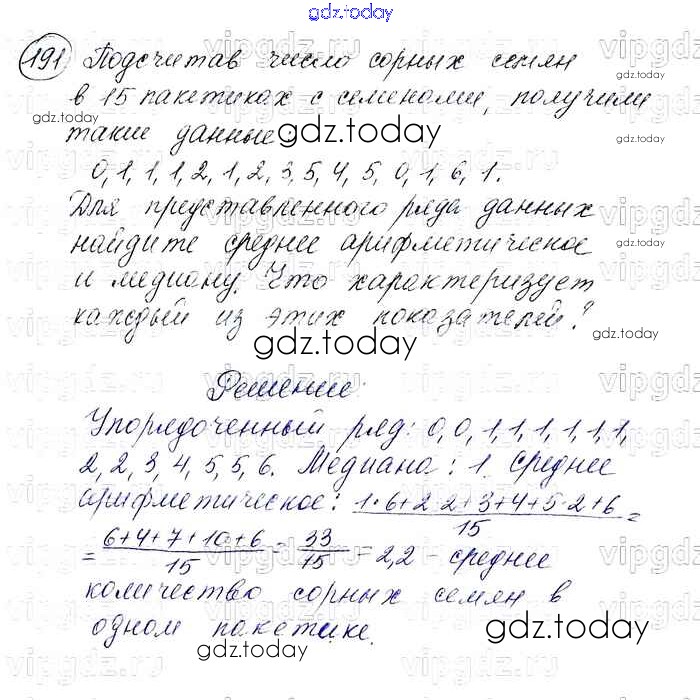 gdz.today
191 Подсчитав число сорных семян
в 15 пакетиках с семенами, получили
такие данные
0, 1, 1, 1, 2, 1, 2, 3, 5, 4, 5, 0, 1, 6, 1.
Для представленного ряда данных
найдите среднее арифметическое
и медиану. Что характеризует
каждый из этих показателей?
gdz.today
Решение.
Упорядоченный ряд: 0, 0, 1, 1, 1, 1, 1, 1,
2, 2, 3, 4, 5, 5, 6. Медиана: 1. Среднее
арифметическое: (1·6+2·2+3+4+5·2+6)/15 =
= (6+4+7+10+6)/15 = 33/15 = 2,2 - среднее
количество сорных семян в
одном пакетике.
gdz.today